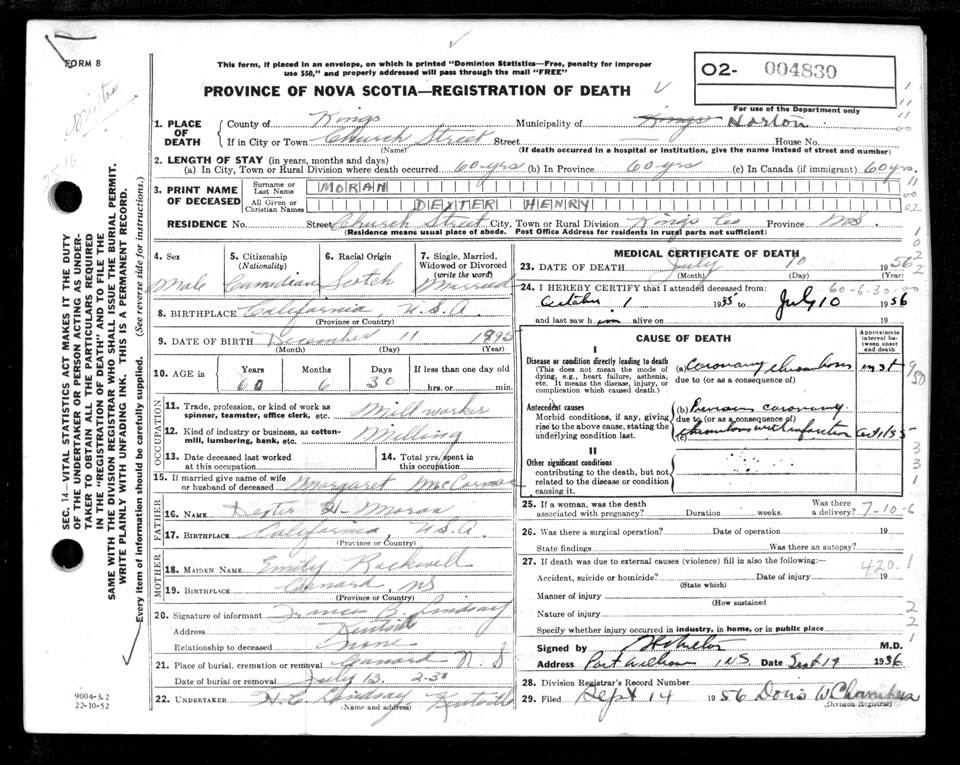 FORM 8
This form, if placed in an envelope, on which is printed "Dominion Statistics—Free, penalty for improper
use $50," and properly addressed will pass through the mail "FREE"
PROVINCE OF NOVA SCOTIA—REGISTRATION OF DEATH
02- 004830
For use of the Department only
1. PLACE OF DEATH
County of Kings Municipality of Kings Horton
If in City or Town Church Street Street House No.
(Name) (If death occurred in a hospital or institution, give the name instead of street and number)
2. LENGTH OF STAY (in years, months and days)
(a) In City, Town or Rural Division where death occurred 60 yrs (b) In Province 60 yrs (c) In Canada (if immigrant) 60 yrs.
3. PRINT NAME OF DECEASED
Surname or Last Name MORAN
All Given or Christian Names DEXTER HENRY
RESIDENCE No. Street Church Street City, Town or Rural Division Kings Co Province NS.
(Residence means usual place of abode. Post Office Address for residents in rural parts not sufficient)
4. Sex Male
5. Citizenship (Nationality) Canadian
6. Racial Origin Scotch
7. Single, Married, Widowed or Divorced (write the word) Married
8. BIRTHPLACE California, U.S.A.
(Province or Country)
9. DATE OF BIRTH December 11 1895
(Month) (Day) (Year)
10. AGE in Years 60 Months 6 Days 30 If less than one day hrs. or min.
OCCUPATION
11. Trade, profession, or kind of work as spinner, teamster, office clerk, etc. Mill worker
12. Kind of industry or business, as cotton-mill, lumbering, bank, etc. Milling
13. Date deceased last worked at this occupation
14. Total yrs. spent in this occupation
15. If married give name of wife or husband of deceased Margaret MacCormac
FATHER
16. NAME Dexter H Moran
17. BIRTHPLACE California, U.S.A.
(Province or Country)
MOTHER
18. MAIDEN NAME Emily Rockwell
19. BIRTHPLACE Canard, NS
(Province or Country)
20. Signature of informant Francis B. Lindsay
Address Kentville
Relationship to deceased None
21. Place of burial, cremation or removal Canard N.S
Date of burial or removal July 13, 2.30
22. UNDERTAKER H.C. Lindsay, Kentville
(Name and address)
MEDICAL CERTIFICATE OF DEATH
23. DATE OF DEATH July 10 1956
(Month) (Day) (Year)
24. I HEREBY CERTIFY that I attended deceased from: 60-6-30-00
October 1 1955 to July 10 1956
and last saw him alive on 19
CAUSE OF DEATH
Approximate interval between onset and death
I
Disease or condition directly leading to death
(This does not mean the mode of dying, e.g., heart failure, asthenia, etc. It means the disease, injury, or complication which caused death.)
(a) Coronary thrombosis inst
due to (or as a consequence of)
Antecedent causes
Morbid conditions, if any, giving rise to the above cause, stating the underlying condition last.
(b) Previous coronary
due to (or as a consequence of)
(c) thrombosis with infarction Oct 1/55
II
Other significant conditions
contributing to the death, but not related to the disease or condition causing it.
25. If a woman, was the death associated with pregnancy? Duration weeks. Was there a delivery? 7-10-6
26. Was there a surgical operation? Date of operation 19
State findings Was there an autopsy?
27. If death was due to external causes (violence) fill in also the following:—
420.1
Accident, suicide or homicide? Date of injury 19
(State which)
Manner of injury
(How sustained)
Nature of injury
Specify whether injury occurred in industry, in home, or in public place
Signed by M.D.
Address Port Williams, NS Date Sept 14 1956
28. Division Registrar's Record Number
29. Filed Sept 14 1956 Doris W Chambers
(Division Registrar)
SEC. 14—VITAL STATISTICS ACT MAKES IT THE DUTY
OF THE UNDERTAKER OR PERSON ACTING AS UNDERTAKER TO OBTAIN ALL THE PARTICULARS REQUIRED
IN THE "REGISTRATION OF DEATH" AND TO FILE THE
SAME WITH THE DIVISION REGISTRAR WHO SHALL ISSUE THE BURIAL PERMIT.
WRITE PLAINLY WITH UNFADING INK. THIS IS A PERMANENT RECORD.
Every item of information should be carefully supplied. (See reverse side for instructions.)
9004-3.2
22-10-52